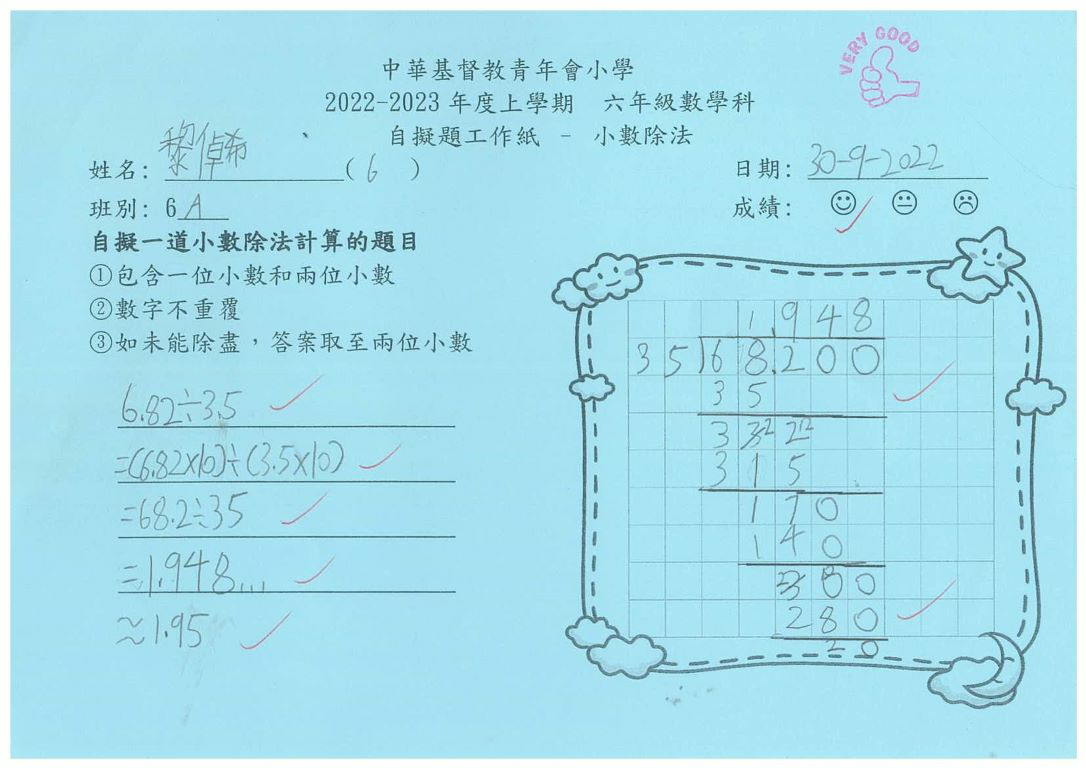 VERY GOOD
中華基督教青年會小學
2022-2023 年度上學期 六年級數學科
自擬題工作紙 - 小數除法
姓名: 黎倬希 ( 6 )
日期: 30-9-2022
班別: 6 A
成績:
自擬一道小數除法計算的題目
①包含一位小數和兩位小數
②數字不重覆
③如未能除盡，答案取至兩位小數
6.82÷3.5
=(6.82×10)÷(3.5×10)
=68.2÷35
=1.948...
≈1.95
1.948
35)68.200
35
332
315
170
140
300
280
20